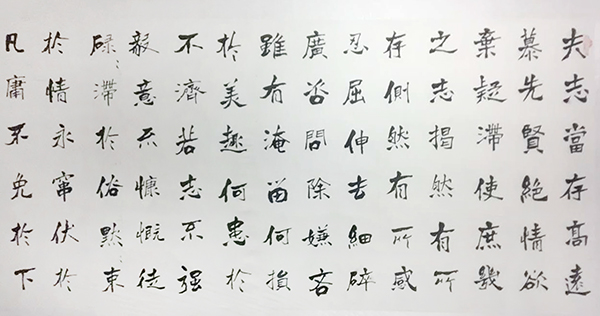 夫志當存高遠
慕先賢絕情欲
棄疑滯使庶幾
之志揭然有所
存側然有所感
忍屈伸去細碎
廣咨問除嫌吝
雖有淹留何損
於美趣何患於
不濟若志不强
毅意不慷慨徒
碌〻滯於俗默〻束
於情永竄伏於
凡庸不免於下